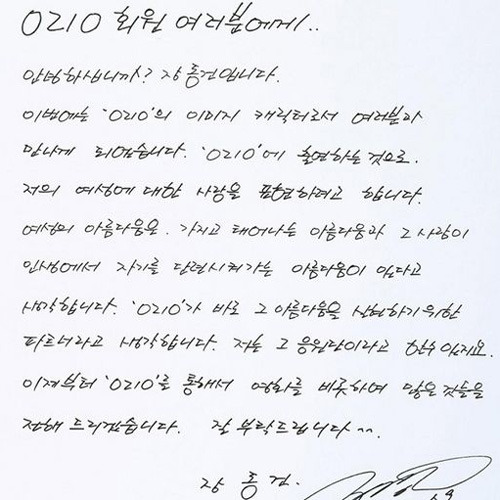 0210 회원 여러분에게..
안녕하십니까? 장동건입니다.
이번에는 '0210'의 이미지 캐릭터로서 여러분과
만나게 되었습니다. '0210'에 출연하는 것으로.
저의 여성에 대한 사랑을 표현하려고 합니다.
여성의 아름다움은. 가지고 태어나는 아름다움과 그 사람이
인생에서 자기를 단련시켜가는 아름다움이 있다고
생각합니다. '0210'가 바로 그 아름다움을 실현하기 위한
파트너라고 생각합니다. 저는 그 응원단이라고 할수 있지요.
이제부터 '0210'를 통해서 영화를 비롯하여 많은것들을
전해 드리겠습니다. 잘 부탁드립니다 ^^.
장 동 건.